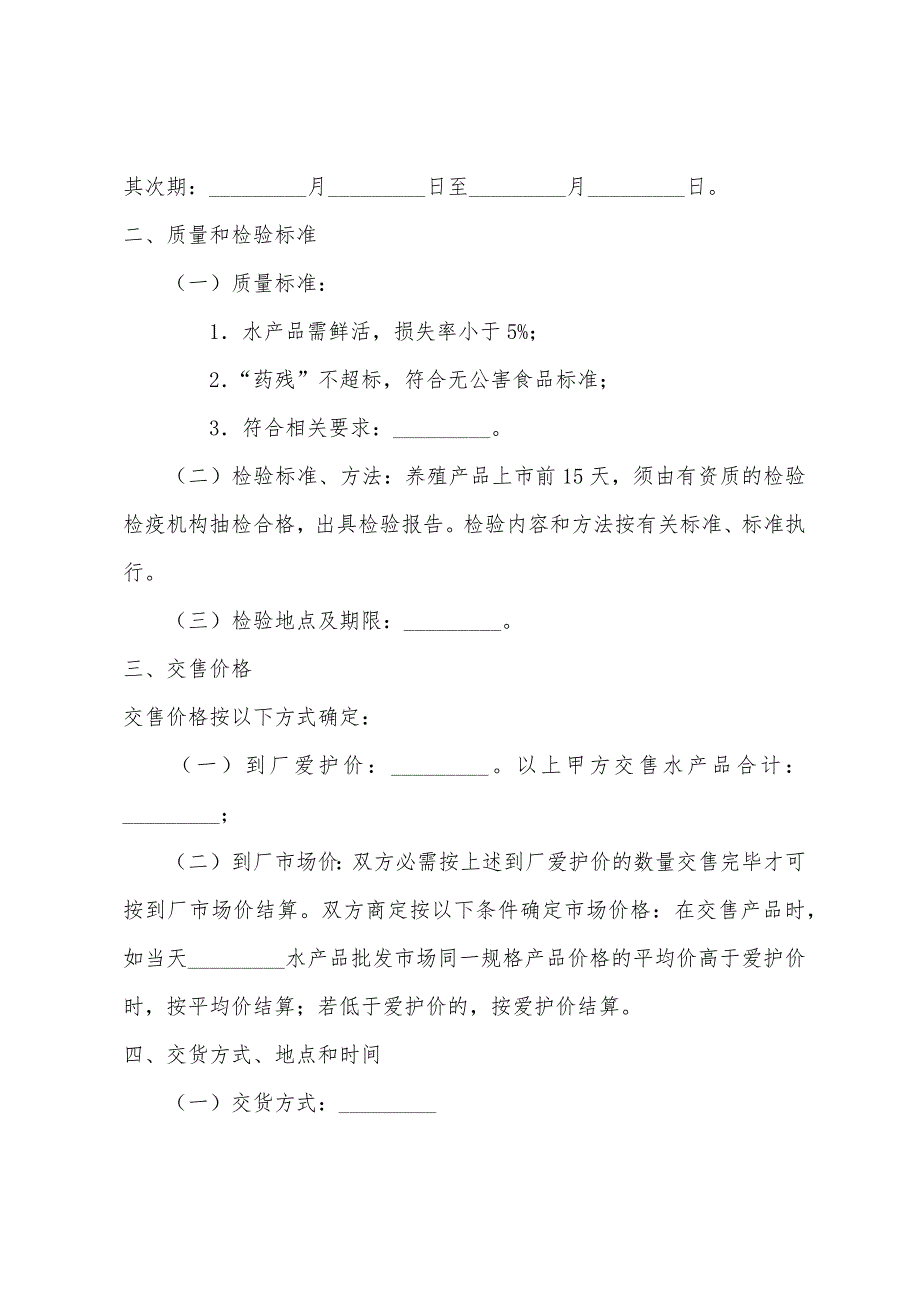 其次期：_________月_________日至_________月_________日。
二、质量和检验标准
（一）质量标准：
1．水产品需鲜活，损失率小于5%；
2．“药残”不超标，符合无公害食品标准；
3．符合相关要求：_________。
（二）检验标准、方法：养殖产品上市前15天，须由有资质的检验
检疫机构抽检合格，出具检验报告。检验内容和方法按有关标准、标准执
行。
（三）检验地点及期限：_________。
三、交售价格
交售价格按以下方式确定：
（一）到厂爱护价：_________。以上甲方交售水产品合计：
_________；
（二）到厂市场价：双方必需按上述到厂爱护价的数量交售完毕才可
按到厂市场价结算。双方商定按以下条件确定市场价格：在交售产品时，
如当天_________水产品批发市场同一规格产品价格的平均价高于爱护价
时，按平均价结算；若低于爱护价的，按爱护价结算。
四、交货方式、地点和时间
（一）交货方式：_________